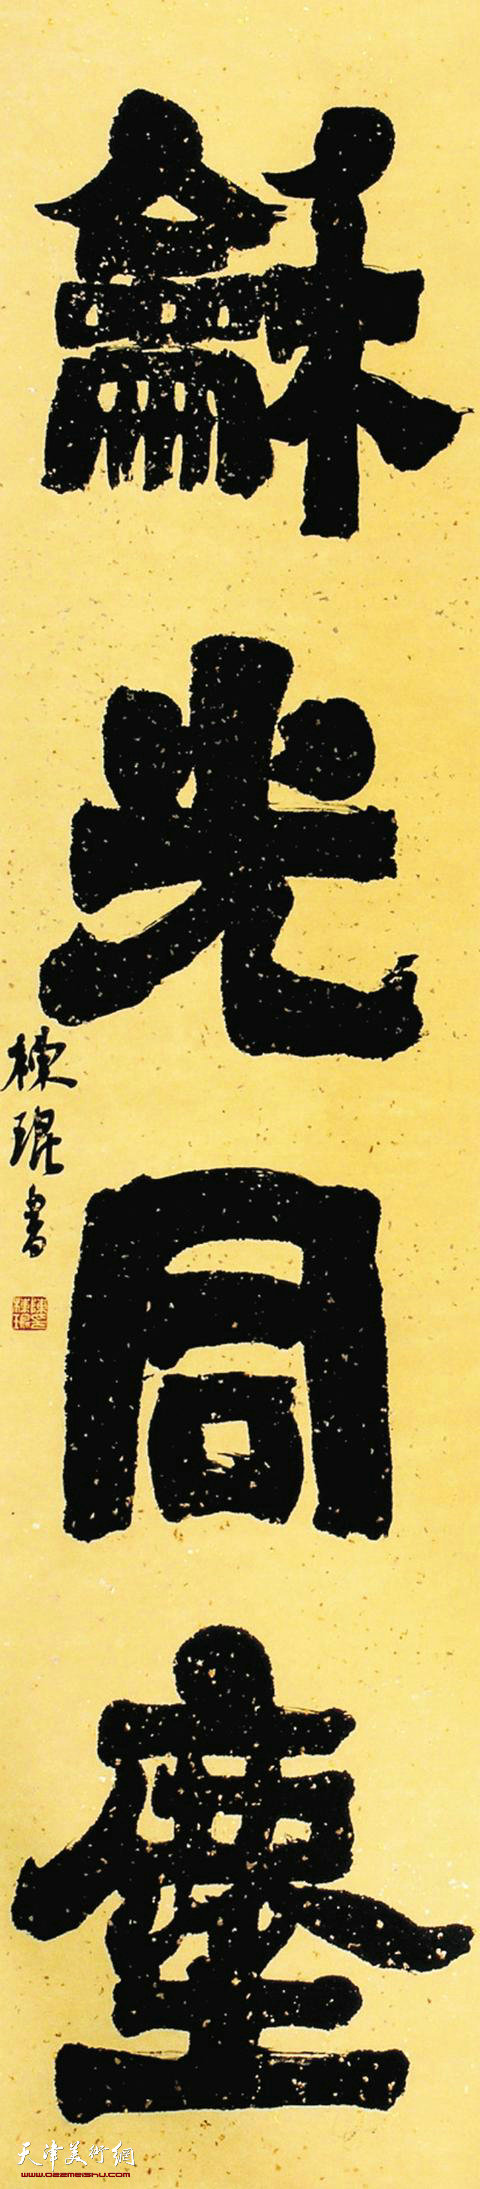 龢光同塵
棟琨書
天津美術網
www.022meishu.com